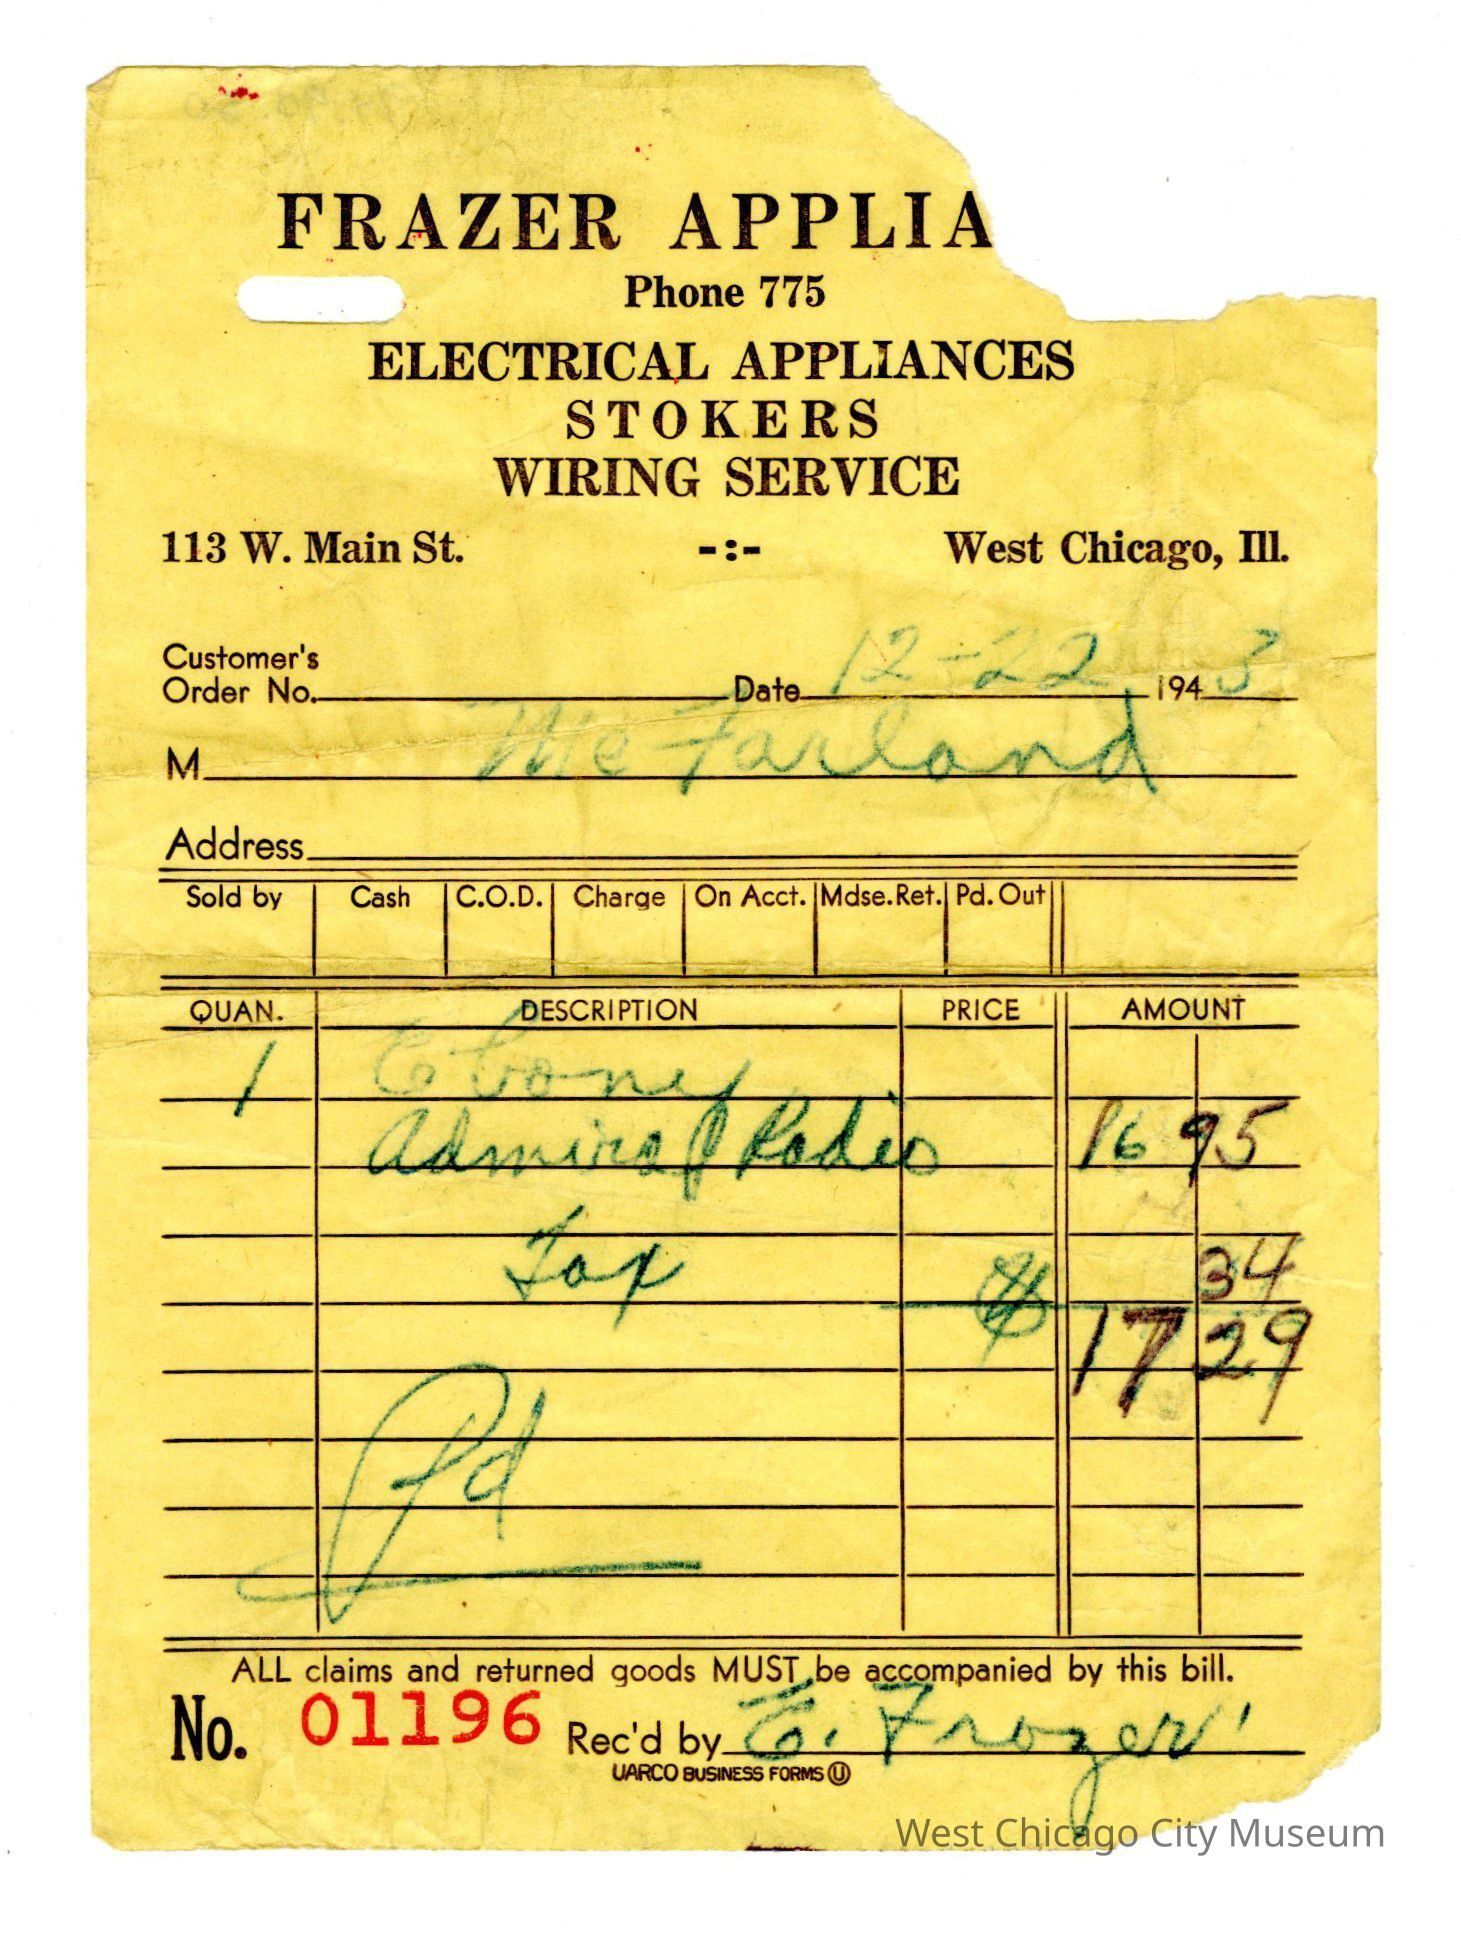 FRAZER APPLIA
Phone 775
ELECTRICAL APPLIANCES
STOKERS
WIRING SERVICE
113 W. Main St. -:- West Chicago, Ill.
Customer's
Order No. Date 12-22, 1943
M McFarland
Address
Sold by Cash C.O.D. Charge On Acct. Mdse. Ret. Pd. Out
QUAN. DESCRIPTION PRICE AMOUNT
1 Ebony
Admiral Radio 16 95
Tax 34
$ 17 29
Pd
ALL claims and returned goods MUST be accompanied by this bill.
No. 01196 Rec'd by E. Frazer
UARCO BUSINESS FORMS U
West Chicago City Museum